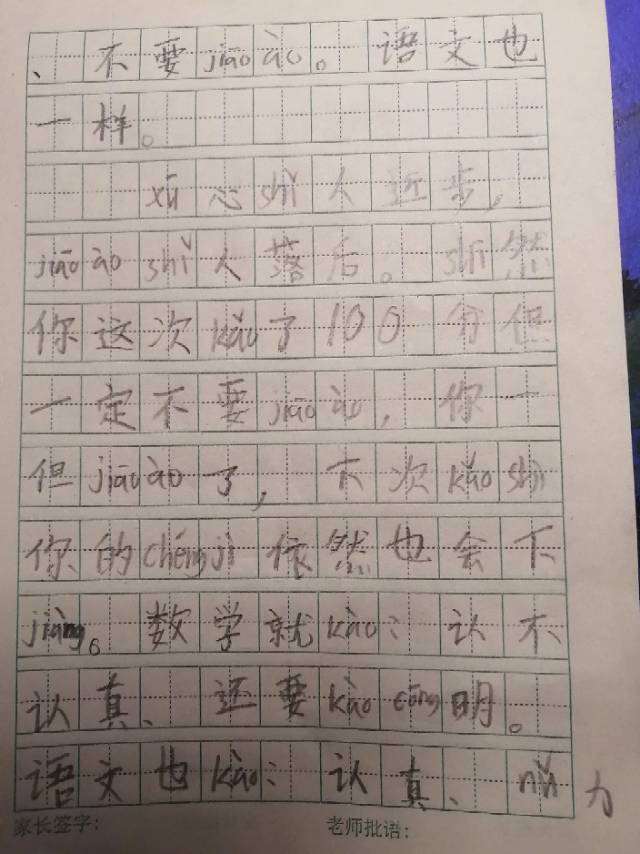 、不要jiāo ào。语文也
一样。
xū心shǐ人近步，
jiāo ào shǐ人落后。shī然
你这次kǎo了100分但
一定不要jiāo ào，你一
但jiāo ào了，下次kǎo shì
你的chéng jì依然也会下
jiàng。数学就kào：认不
认真、还要kào cōng明。
语文也kào：认真、nǔ力
家长签字：
老师批语：